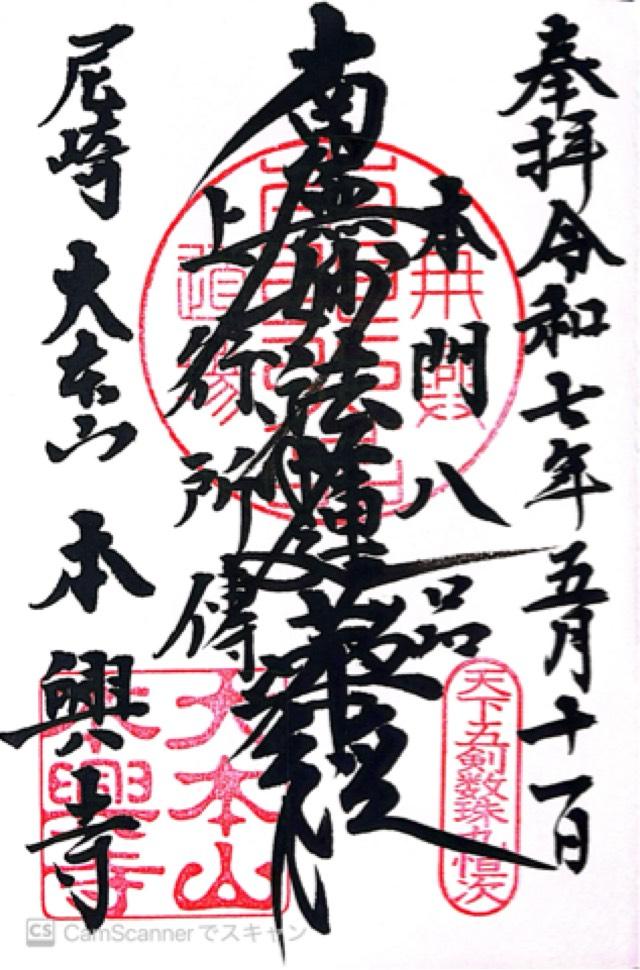 奉拝 令和七年五月十一日
本門八品
南無妙法蓮華經
上行所傳
尼崎 大本山 本興寺
天下五剣数珠丸恒次
大本山
本興寺
CS CamScannerでスキャン